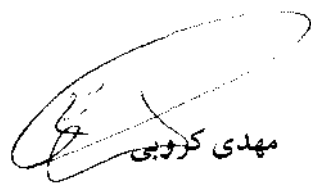 مهدی کروبی